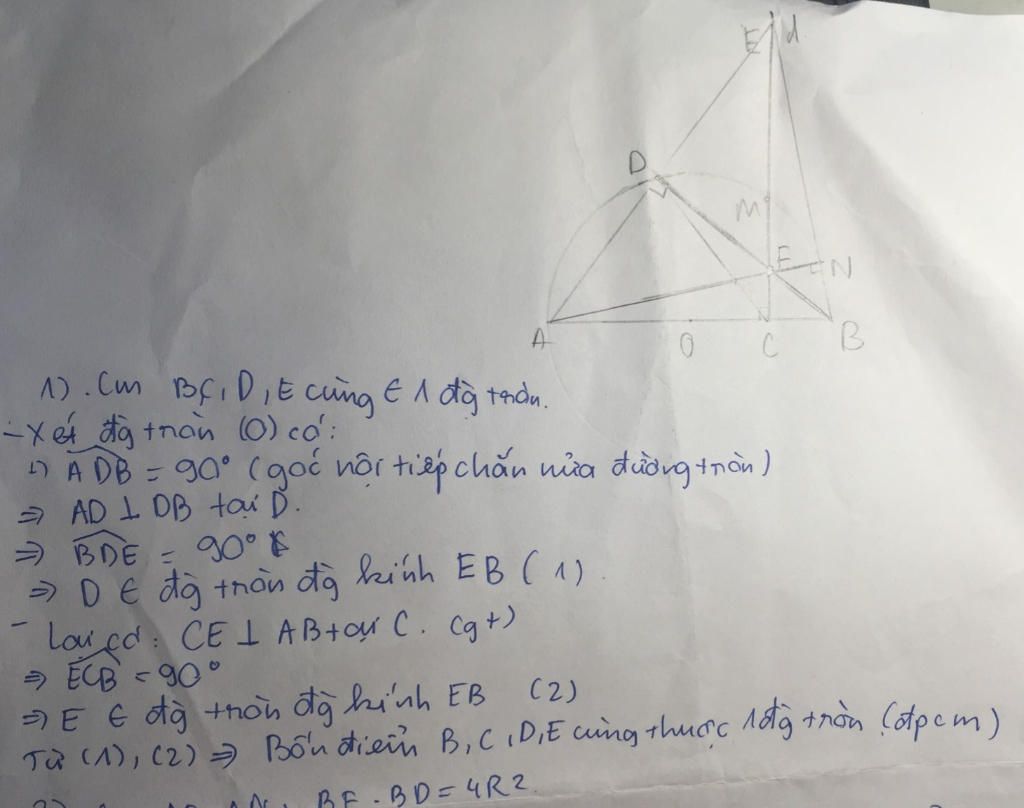 E d
D
M
F N
A O C B
1). Cm B,C,D,E cùng ∈ 1 đg tròn.
- Xét đg tròn (O) có:
↳ ADB = 90° (góc nội tiếp chắn nửa đường tròn)
⇒ AD ⊥ DB tại D.
⇒ BDE = 90°
⇒ D ∈ đg tròn đg kính EB (1).
- Lại có: CE ⊥ AB tại C. (gt)
⇒ ECB = 90°
⇒ E ∈ đg tròn đg kính EB (2)
Từ (1), (2) ⇒ Bốn điểm B,C,D,E cùng thuộc 1 đg tròn (đpcm)
BF.BD = 4R2.